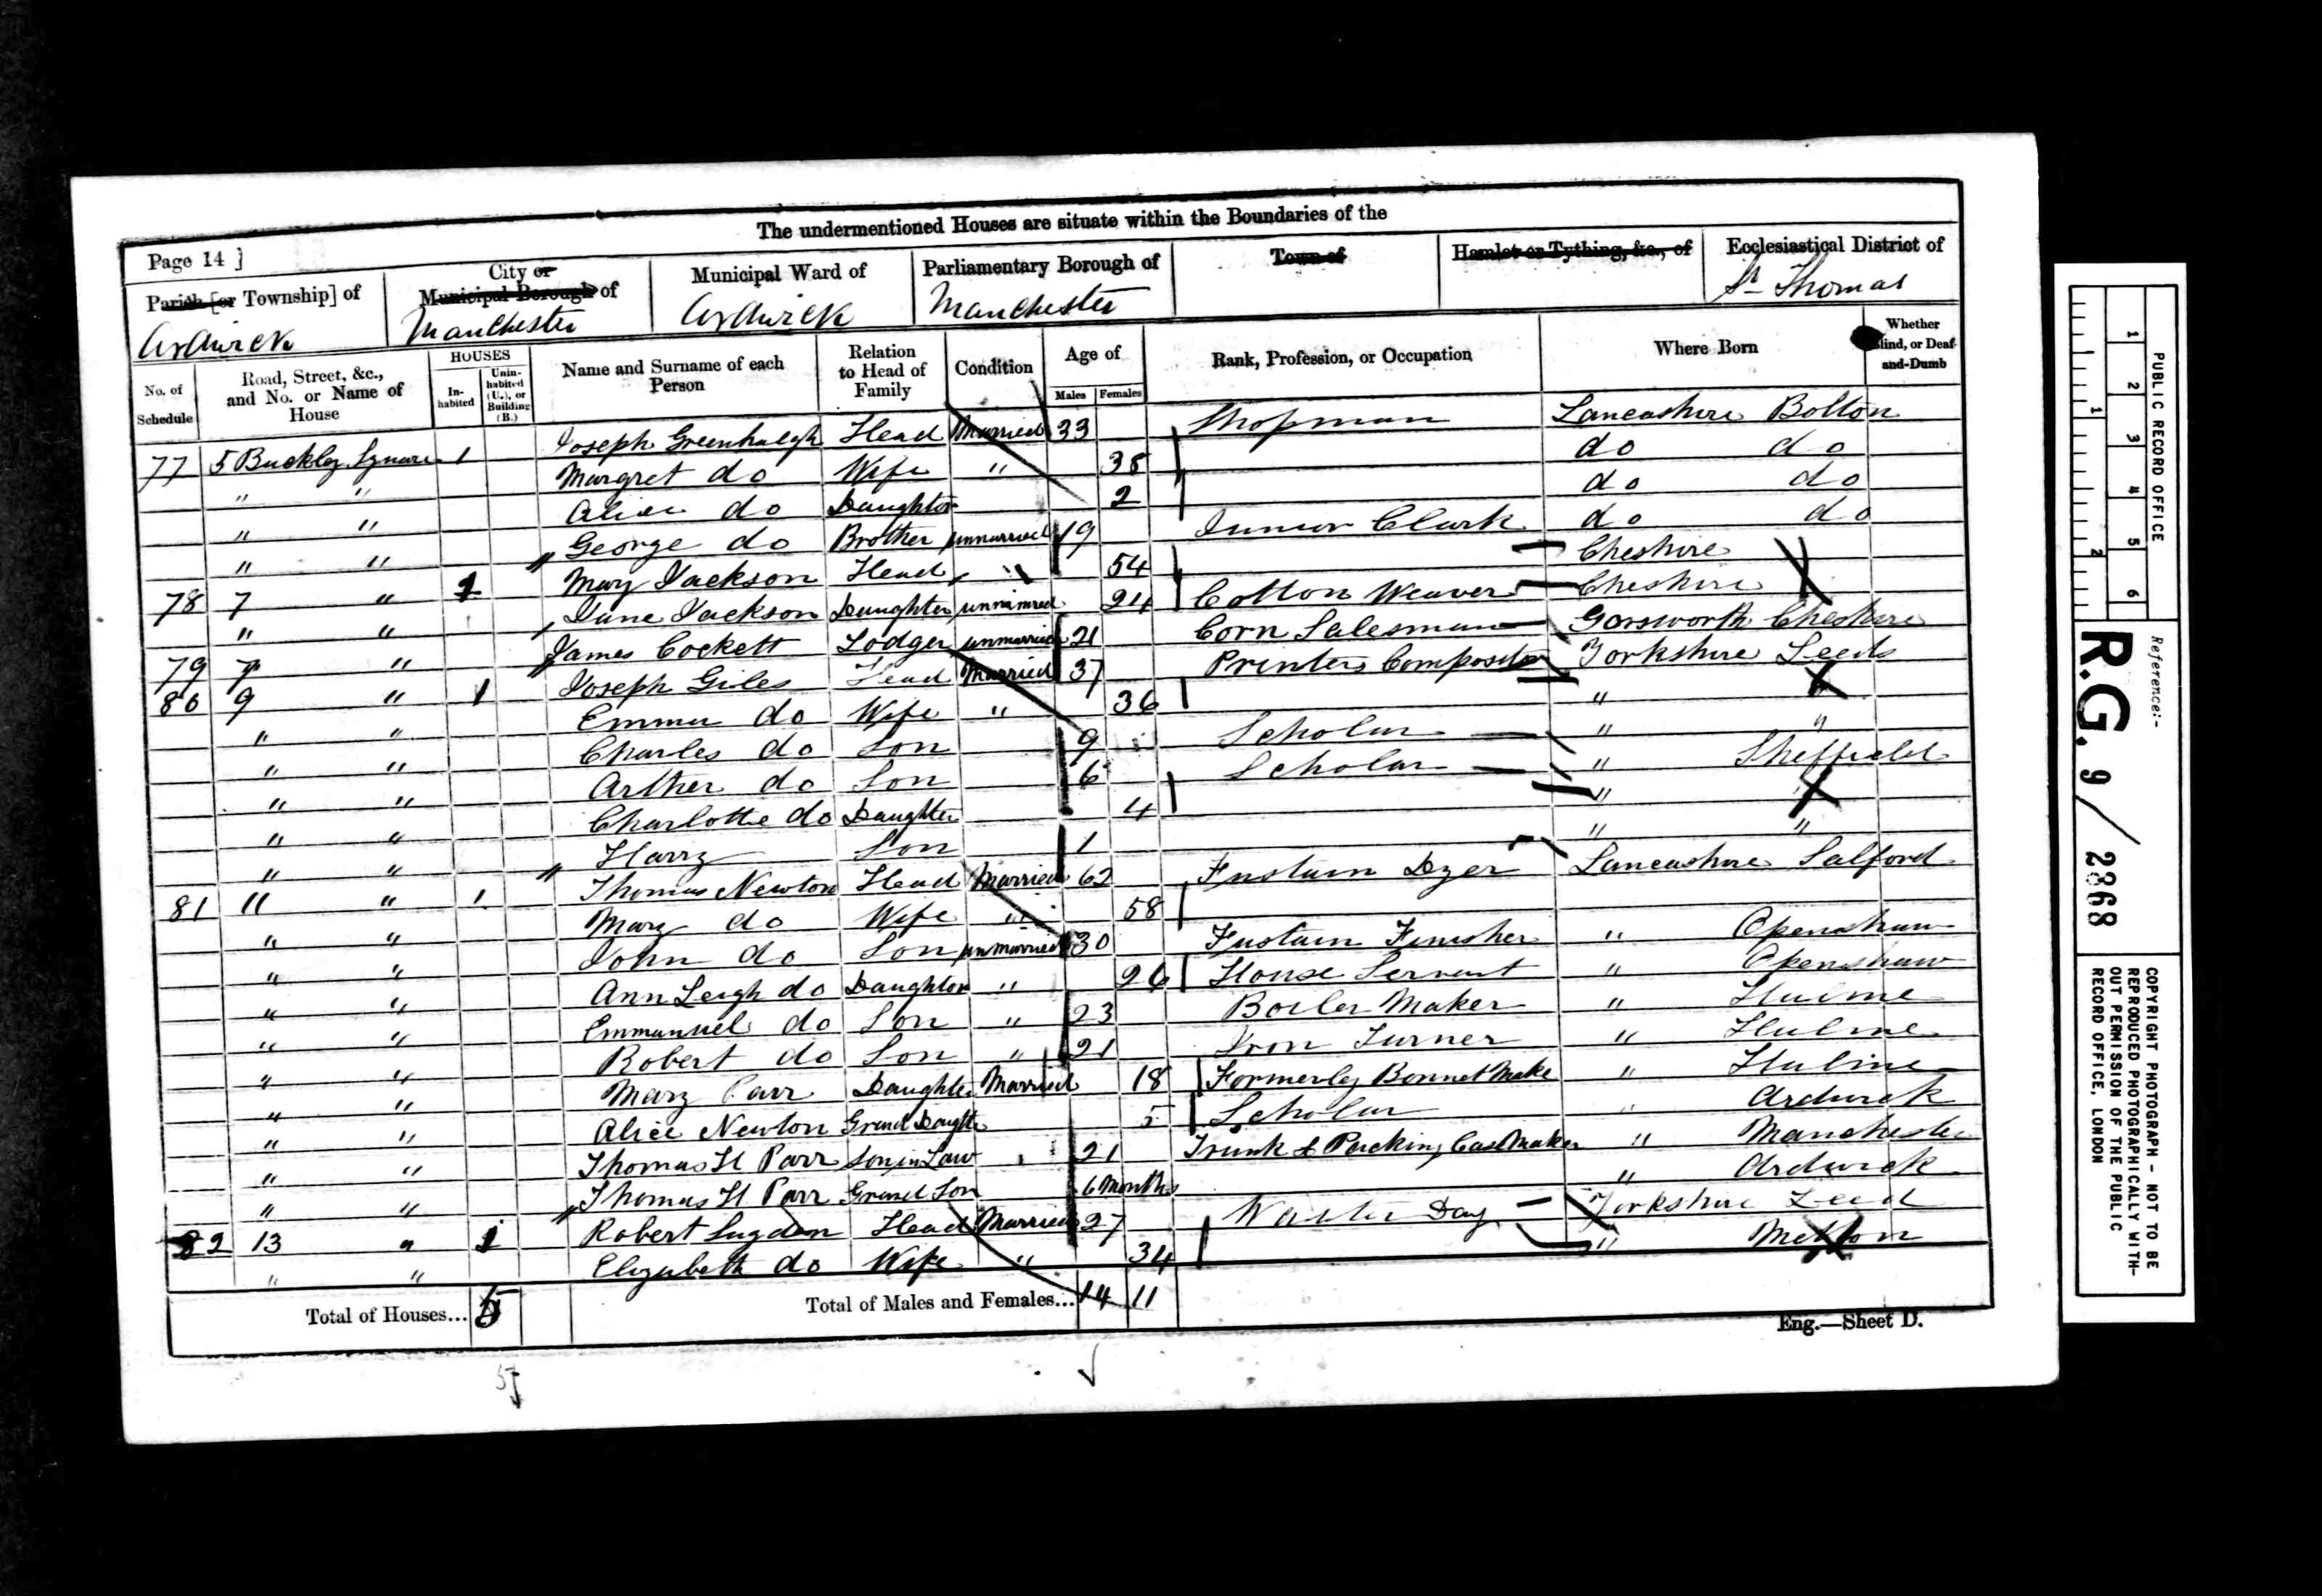 The undermentioned Houses are situate within the Boundaries of the
Page 14 ]
Parish [or Township] of
City or Municipal Borough of
Municipal Ward of
Parliamentary Borough of
Town of
Hamlet or Tything, &c., of
Ecclesiastical District of
Ardwick
Manchester
Ardwick
Manchester
St Thomas
No. of Schedule
Road, Street, &c., and No. or Name of House
HOUSES
In-habited
Unin-habited (U.), or Building (B.)
Name and Surname of each Person
Relation to Head of Family
Condition
Age of
Males
Females
Rank, Profession, or Occupation
Where Born
Whether Blind, or Deaf-and-Dumb
77 5 Buckley Square 1 Joseph Greenhalgh Head Married 33 Shopman Lancashire Bolton
" " Margret do Wife " 38 do do
" " Alice do Daughter 2 do do
" " George do Brother unmarried 19 Junior Clark do do
78 7 " 1 Mary Jackson Head " 54 Cheshire
" " Jane Jackson Daughter unmarried 24 Cotton Weaver Cheshire
79 7 " James Cockett Lodger unmarried 21 Corn Salesman Gorsworth Cheshire
80 9 " 1 Joseph Giles Head Married 37 Printers Compositor Yorkshire Leeds
" " Emma do Wife " 36 " "
" " Charles do Son 9 Scholar " "
" " Arther do Son 6 Scholar " Sheffield
" " Charlotte do Daughter 4 " "
" " Harry Son 1 " "
81 11 " 1 Thomas Newton Head Married 62 Fustain Dyer Lancashire Salford
" " Mary do Wife " 58
" " John do Son unmarried 30 Fustain Finisher " Openshaw
" " Ann Leigh do Daughter " 26 House Servent " Openshaw
" " Emmanuel do Son " 23 Boiler Maker " Hulme
" " Robert do Son " 21 Iron Turner " Hulme
" " Mary Parr Daughter Married 18 Formerly Bonnet Make " Hulme
" " Alice Newton Grand Daughter 5 Scholar " Ardwick
" " Thomas H Parr Son in Law " 21 Trunk & Packing Case Maker " Manchester
" " Thomas H Parr Grand Son 6 Months " Ardwick
82 13 " 1 Robert Sugden Head Married 27 Day Yorkshire Leed
" " Elizabeth do Wife " 34 "
Total of Houses... 5
Total of Males and Females... 14 11
Eng.—Sheet D.
PUBLIC RECORD OFFICE
1 2 3 4 5 6
1 2
Reference:-
R.G. 9 / 2868
COPYRIGHT PHOTOGRAPH - NOT TO BE
REPRODUCED PHOTOGRAPHICALLY WITH-
OUT PERMISSION OF THE PUBLIC
RECORD OFFICE, LONDON